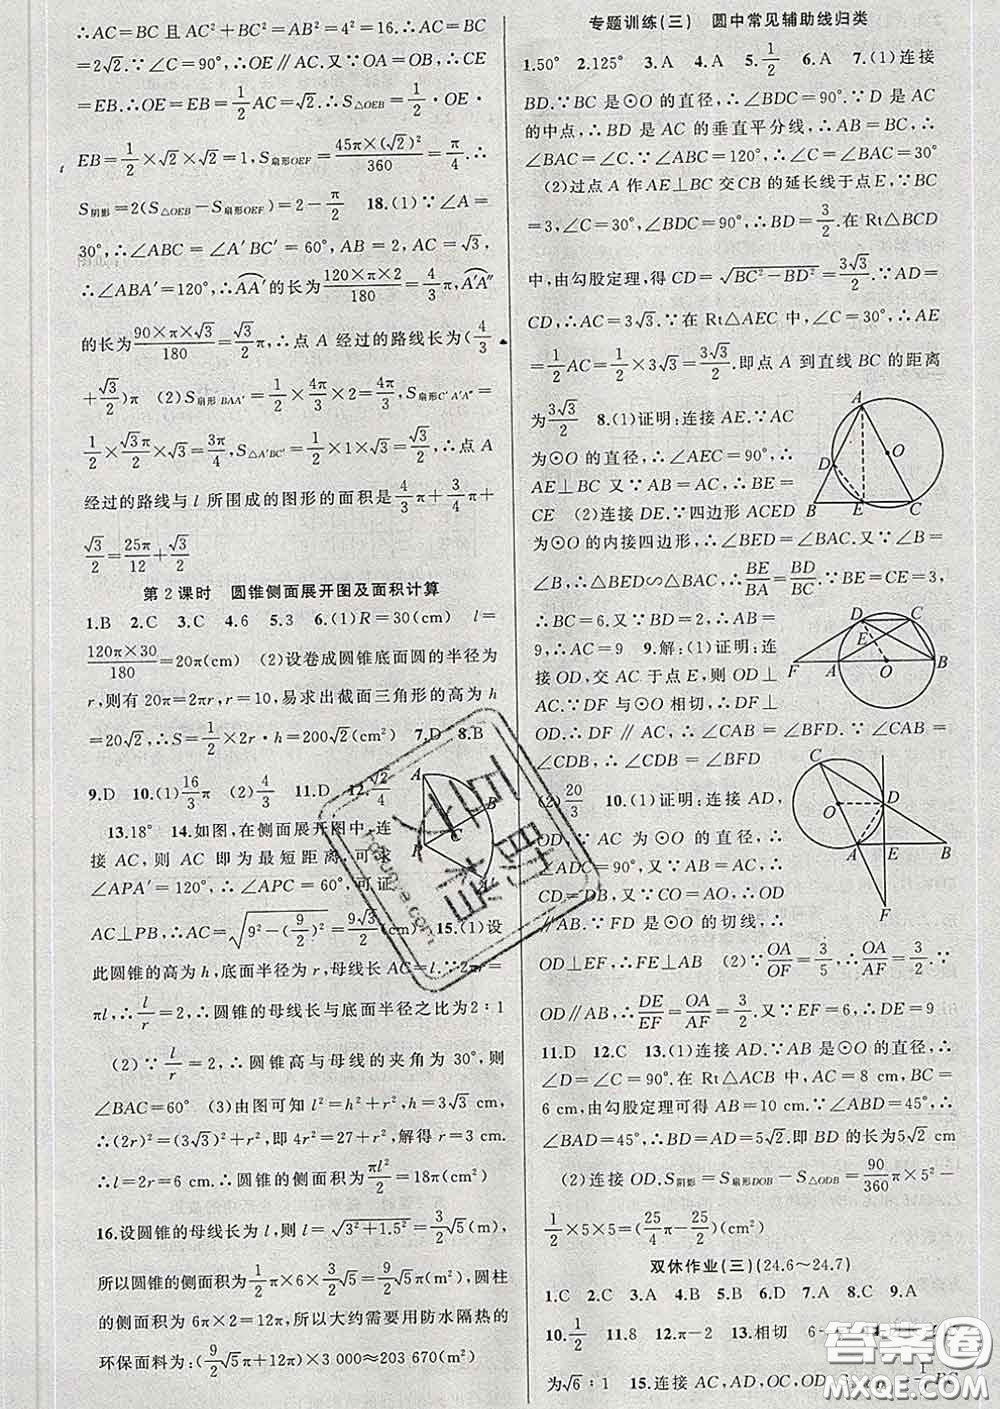 ∴AC=BC 且 AC²+BC²=AB²=4²=16.∴AC=BC
=2√2.∵∠C=90°,∴OE∥AC.又OA=OB,∴CE
=EB.∴OE=EB=1/2AC=√2.∴S△OEB=1/2·OE·
EB=1/2×√2×√2=1,S扇形OEF=45π×(√2)²/360=π/4.∴
S阴影=2(S△OEB-S扇形OEF)=2-π/2 18.(1)∵∠A=
30°,∴∠ABC=∠A′BC′=60°,AB=2,AC=√3,
∴∠ABA′=120°,∴AA′的长为120×π×2/180=4/3π,A′A″
的长为90×π×√3/180=√3/2π,∴点 A 经过的路线长为(4/3
+√3/2)π (2)S扇形BAA′=1/2×4π/3×2=4π/3,S扇形C′A′A″=
1/2×√3π/2×√3=3π/4,S△A′BC′=1/2×1×√3=√3/2,∴点 A
经过的路线与 l 所围成的图形的面积是4/3π+3/4π+
√3/2=25π/12+√3/2
第2课时 圆锥侧面展开图及面积计算
1.B 2.C 3.C 4.6 5.3 6.(1)R=30(cm) l=
120π×30/180=20π(cm) (2)设卷成圆锥底面圆的半径为
r,则有 20π=2πr,r=10,易求出截面三角形的高为 h
=20√2,∴S=1/2×2r·h=200√2(cm²) 7.D 8.B
9.D 10.(1)16/3π (2)4/3 11.D 12.√2/4
13.18° 14.如图,在侧面展开图中,连
接 AC,则 AC 即为最短距离,可求
∠APA′=120°,∴∠APC=60°,可证
AC⊥PB,∴AC=√9²-(9/2)²=9√3/2(cm) 15.(1)设
此圆锥的高为 h,底面半径为 r,母线长 AC=l.∵2πr=
πl,∴l/r=2,∴圆锥的母线长与底面半径之比为2∶1
(2)∵l/r=2,∴圆锥高与母线的夹角为 30°,则
∠BAC=60° (3)由图可知 l²=h²+r²,h=3√3 cm,
∴(2r)²=(3√3)²+r²,即 4r²=27+r²,解得 r=3 cm,
∴l=2r=6 cm,∴圆锥的侧面积为πl²/2=18π(cm²)
16.设圆锥的母线长为 l,则 l=√3²+1.5²=3/2√5(m),
所以圆锥的侧面积为1/2π×6×3/2√5=9/2√5π(m²),圆柱
的侧面积为 6π×2=12π(m²),所以大约需要用防水隔热的
环保面料为:(9/2√5π+12π)×3 000≈203 670(m²)
专题训练(三) 圆中常见辅助线归类
1.50° 2.125° 3.A 4.A 5.1/2 6.A 7.(1)连接
BD.∵BC 是⊙O 的直径,∴∠BDC=90°.∵D 是 AC
的中点,∴BD 是 AC 的垂直平分线,∴AB=BC,∴
∠BAC=∠C.∵∠ABC=120°,∴∠C=∠BAC=30°
(2)过点 A 作AE⊥BC 交CB 的延长线于点 E,∵BC
=3,∠C=30°,∠BDC=90°,∴BD=3/2.在 Rt△BCD
中,由勾股定理,得 CD=√BC²-BD²=3√3/2.∵AD=
CD,∴AC=3√3.∵在 Rt△AEC 中,∠C=30°,∴AE
=1/2AC=1/2×3√3=3√3/2.即点 A 到直线 BC 的距离
为3√3/2 8.(1)证明:连接 AE.∵AC
为⊙O 的直径,∴∠AEC=90°,∴
AE⊥BC 又∵AB=AC,∴BE=
CE (2)连接 DE.∵四边形 ACED
为⊙O 的内接四边形,∴∠BED=∠BAC.又∵∠B=
∠B,∴△BED∽△BAC,∴BE/BA=BD/BC.∵BE=CE=3,
∴BC=6.又∵BD=2,∴AB=
9,∴AC=9 9.解:(1)证明:连
接 OD,交 AC 于点 E,则 OD⊥
AC.∵DF 与⊙O 相切,∴DF⊥
OD.∴DF∥AC,∴∠CAB=∠BFD.∵∠CAB=
∠CDB,∴∠CDB=∠BFD
(2)20/3 10.(1)证明:连接 AD,
OD.∵AC 为⊙O 的直径,∴
∠ADC=90°.又∵AC=AB,∴
CD=DB,又 CO=AO,∴OD
∥AB.∵FD 是⊙O 的切线,∴
OD⊥EF,∴FE⊥AB (2)∵OA/OF=3/5,∴OA/AF=3/2.∵
OD∥AB,∴DE/EF=OA/AF=3/2.又∵EF=6,∴DE=9
11.D 12.C 13.(1)连接 AD.∵AB是⊙O 的直径,∴
∠D=∠C=90°.在 Rt△ACB 中,AC=8 cm,BC=
6 cm,由勾股定理可得 AB=10 cm,又∵∠ABD=45°,∴
∠BAD=45°,∴BD=AD=5√2.即 BD 的长为5√2 cm
(2)连接 OD.S阴影=S扇形DOB-S△ODB=90/360π×5²-
1/2×5×5=(25/4π-25/2)(cm²)
双休作业(三)(24.6~24.7)
1.C 2.C 3.A 4.B 5.B 6.D 7.A 8.C 9.A
10.1/2 11.8 12.π-2 13.相切
为√6∶1 15.连接 AC,AD,OC,OD
答案圈